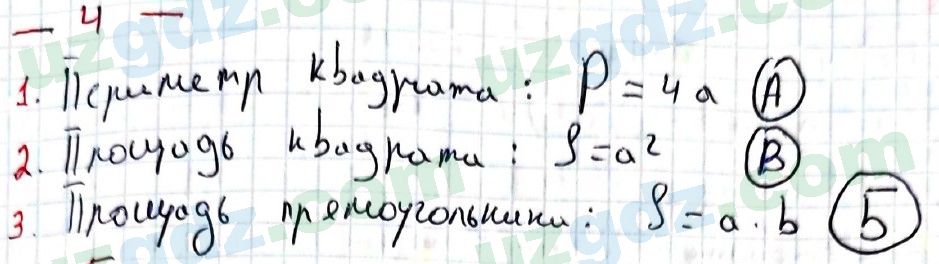 — 4 —
1. Периметр квадрата : P = 4a (А)
2. Площадь квадрата : S = a² (В)
3. Площадь прямоугольники : S = a · b (Б)
uzgdz.com